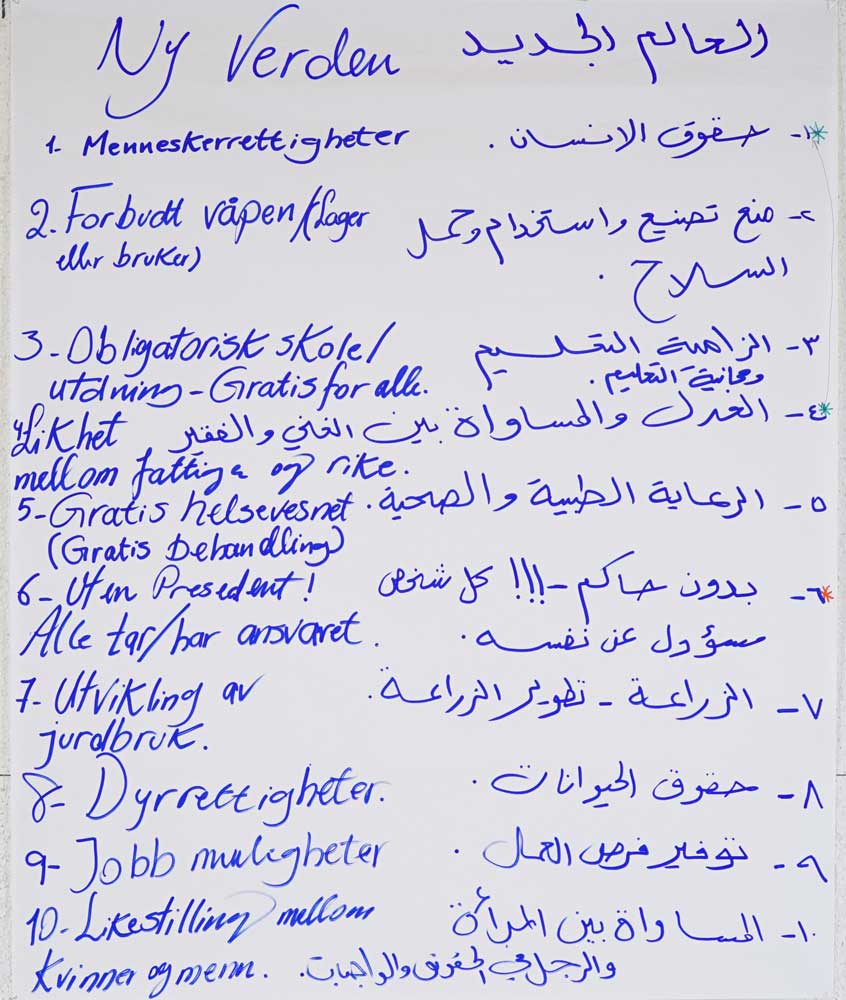 Ny Verden العالم الجديد
1- Menneskerrettigheter ١- حقوق الانسان .
2. Forbudt våpen/(Lager ٢- منع تصنيع واستخدام وحمل
eller bruker) السلاح .
3-Obligatorisk skole/ ٣- الزامية التعليم
utdning-Gratis for alle. ومجانية التعليم .
4 Likhet ٤- العدل والمساواة بين الغني والفقير
mellom fattige og rike.
5-Gratis helsevesnet ٥- الرعاية الطبية والصحية .
(Gratis behandling)
6- Uten Presedent! ٦- بدون حاكم -!!! كل شخص
Alle tar/har ansvaret . مسؤول عن نفسه .
7- Utvikling av ٧- الزراعة - تطوير الزراعة .
jurdbruk.
8- Dyrrettigheter. ٨- حقوق الحيوانات .
9- Jobb muligheter ٩- توفير فرص العمل .
10-Likestilling mellom ١٠- المساواة بين المرأة
Kvinner og menn. والرجل في الحقوق والواجبات .